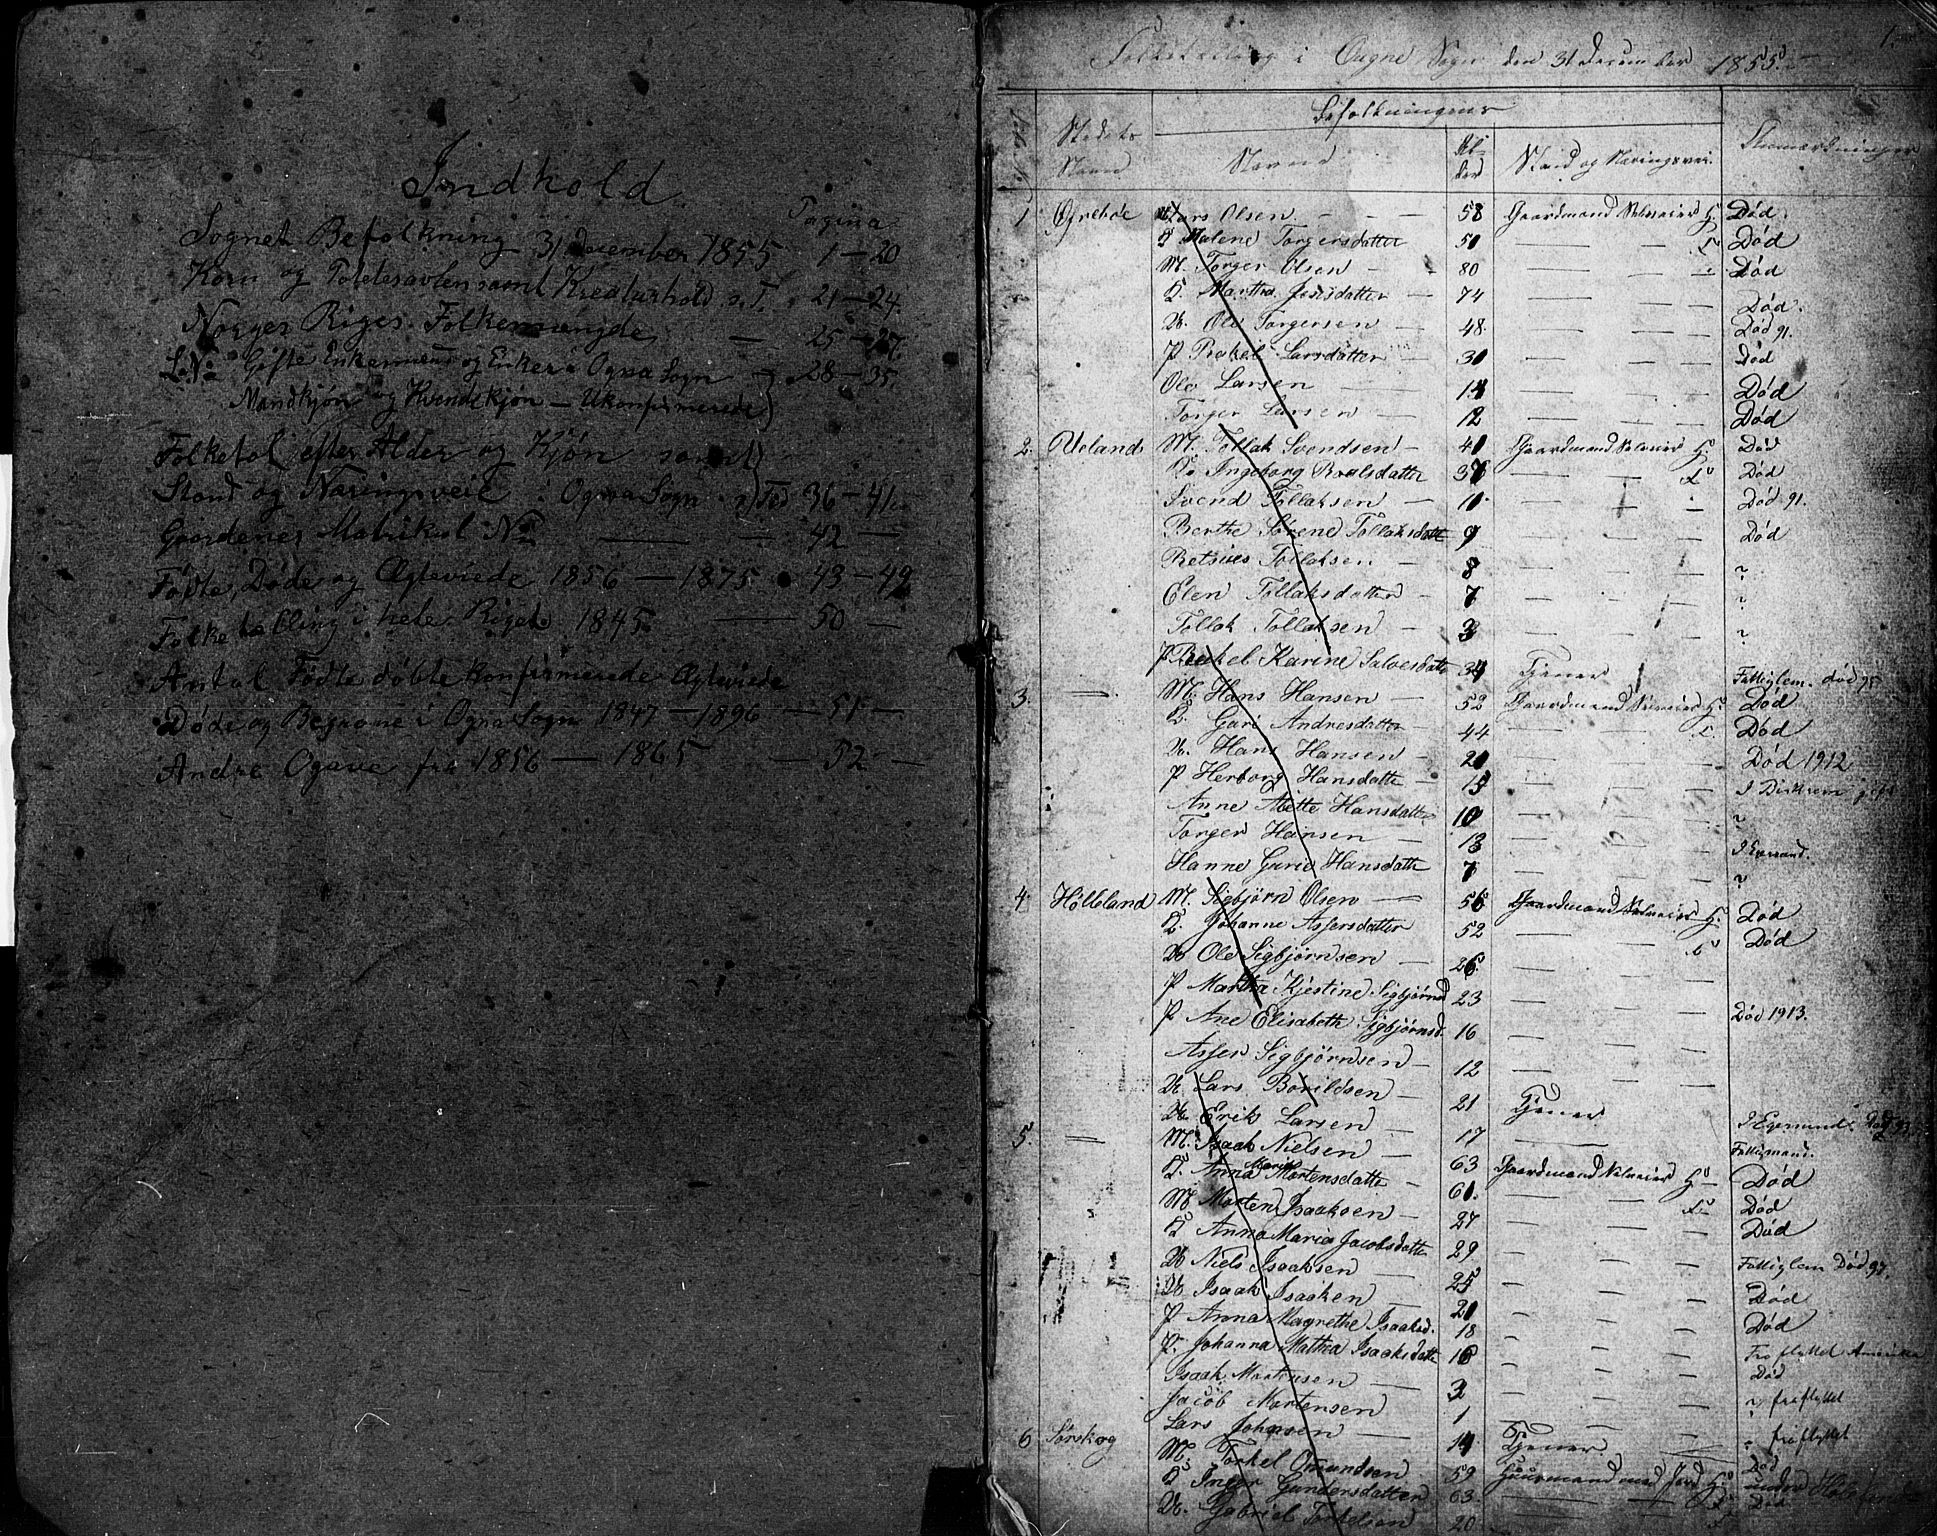 Indhold
Pagina
Sognet Befolkning 31 December 1855 1 — 20
Korn og Potetesavlen samt Kreaturhold s.T. 21 — 24.
Norges Riges Folkemængde — 25 — 27.
Gifte Enkemænd og Enker i Ogna Sogn — 28 — 35
Mandkjøn og Kvindekjøn — Ukonfirmerede
Folketal efter Alder og Kjøn samt
Stand og Næringsveie i Ogna Sogn 36 — 41
Gaardenes Matrikul No — — 42 —
Fødte, Døde og Ægteviede 1856 — 1875 43 — 49
Folketælling i hele Riget 1845 — 50 —
Antal Fødte døbte Konfirmerede Ægteviede
Døde og Begravne i Ogna Sogn 1847 — 1896 — 51 —
Andre Ogave fra 1856 — 1865 — 52 —
1.
Folketælling i Ougne Sogn den 31 December 1855.
Befolkningens
Stedets Navn Navne Alder Stand og Næringsvei. Anmærkninger
1 Øfrebøe Lars Olsen 58 Gaardmand Selveier H. Død.
K Malene Torgersdatter 50 Død
M. Torger Olsen 80 Død
K. Martha 74 Død.
U. Ole Torgersen 48. Død 91.
P Rakel Larsdatter 30 Død
Ole Larsen 14 Død
Torger Larsen 12 Død
2. Ueland M. Tollak Svendsen 40 Gaardmand Selveier H. Død
Ko Ingeborg Roalsdatter 37 Død
Svend Tollaksen 11. Død 91.
Berthe Sørene Tollaksdatte 9 Død
Tollaksen 8 ?
Elen Tollaksdatter 7 ?
Tollak Tollaksen 3 ?
P Rakel Karine Salvesdatte 34 Tjener Fattiglem. død 95
3. — M. Hans Hansen 52 Gaardmand Selveier H. Død
K. Guri Andresdatter 44 Død
U. Hans Hansen 20 Død 1912
P Herborg Hansdatte 15 I
Anne Mette Hansdatter 10 ?
Torger Hansen 13 I
Hanne Gurie Hansdatte 7 ?
4. Hølleland M. Sigbjørn Olsen 56 Gaardmand Selveier H. Død
K. Johanne Assersdatter 52 Død
U Ole Sigbjørnsen 26
P Martha Kjestine Sigbjørnsd 23
P Ane Elisabeth Sigbjørnsd. 16 Død 1913.
Asser Sigbjørnsen 12
U. Lars Borildsen 21 Tjener
U. Erik Larsen 17 — I Egersund. Død 93
5. — M. Isaak Nielsen 63 Gaardmand Selveier H Død
K. Anna Marie Mortensdatte 60. Død
M Morten Isaaksen 27 Død
K Anna Maria Jacobsdatte 29
U Niels Isaaksen 25 Fattiglem Død 97.
U Isaak Isaaksen 20 Død
P Anna Magrethe Isaaksd. 18 Død
P. Johanna Mathea Isaaksdatte 16 Fra flyttet Amerika
Isaak Mortensen 3 Død
Jacob Mortensen 1 ? fraflyttet
Lars Johnsen 14 Tjener ? fraflyttet
6 Sørskog M. Torkel Omundsen 59 Huusmand med Jord H. Død
K Inger Gundersdatter 63. Død
U. Gabriel Torkelsen 20